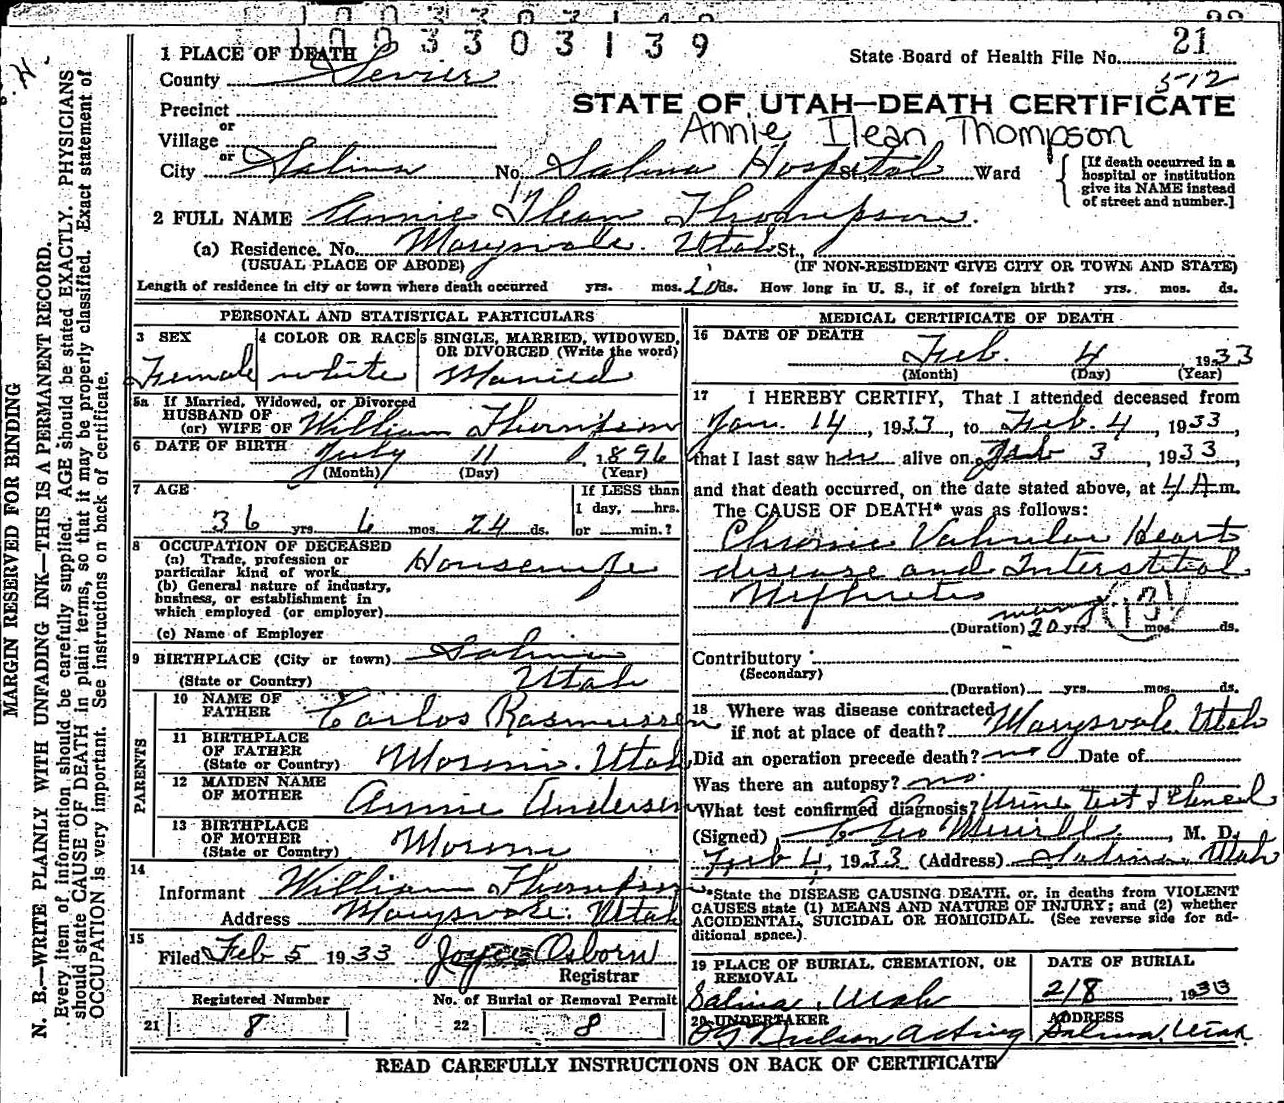 1003303139
1 PLACE OF DEATH
County Sevier
State Board of Health File No. 21
512
Precinct
or
Village
or
City Salina No. Salina Hospital St., Ward
STATE OF UTAH—DEATH CERTIFICATE
Annie Ilean Thompson
[If death occurred in a
hospital or institution
give its NAME instead
of street and number.]
2 FULL NAME Annie Ilean Thompson.
(a) Residence. No. Marysvale. Utah St.,
(USUAL PLACE OF ABODE) (IF NON-RESIDENT GIVE CITY OR TOWN AND STATE)
Length of residence in city or town where death occurred yrs. mos. ds. How long in U. S., if of foreign birth? yrs. mos. ds.
PERSONAL AND STATISTICAL PARTICULARS
3 SEX
Female
4 COLOR OR RACE
white
5 SINGLE, MARRIED, WIDOWED,
OR DIVORCED (Write the word)
Married
5a If Married, Widowed, or Divorced
HUSBAND OF
(or) WIFE OF William Thompson
6 DATE OF BIRTH July 11, 1896
(Month) (Day) (Year)
7 AGE
36 yrs. 6 mos. 24 ds.
If LESS than
1 day, hrs.
or min.?
8 OCCUPATION OF DECEASED
(a) Trade, profession or
particular kind of work Housewife
(b) General nature of industry,
business, or establishment in
which employed (or employer)
(c) Name of Employer
9 BIRTHPLACE (City or town) Salina
(State or Country) Utah
PARENTS
10 NAME OF
FATHER Carlos Rasmussen
11 BIRTHPLACE
OF FATHER
(State or Country) Moroni. Utah
12 MAIDEN NAME
OF MOTHER Annie Andersen
13 BIRTHPLACE
OF MOTHER
(State or Country) Moroni
14
Informant William Thompson
Address Marysvale. Utah
15
Filed Feb 5 1933 Joyce Osborn
Registrar
Registered Number
21 8
No. of Burial or Removal Permit
22 8
MEDICAL CERTIFICATE OF DEATH
16 DATE OF DEATH
Feb. 4 1933
(Month) (Day) (Year)
17 I HEREBY CERTIFY, That I attended deceased from
Jan. 14, 1933, to Feb. 4, 1933,
that I last saw her alive on Feb 3, 1933,
and that death occurred, on the date stated above, at 4 A.m.
The CAUSE OF DEATH* was as follows:
Chronic Valvular Heart
disease and Interstitial
Nephretes
many 131
(Duration) 20 yrs. mos. ds.
Contributory
(Secondary)
(Duration) yrs. mos. ds.
18 Where was disease contracted
if not at place of death? Marysvale. Utah
Did an operation precede death? no Date of
Was there an autopsy? no.
What test confirmed diagnosis? Urine Test &
(Signed) M. D.
Feb 4, 1933 (Address) Salina. Utah
*State the DISEASE CAUSING DEATH, or, in deaths from VIOLENT
CAUSES state (1) MEANS AND NATURE OF INJURY; and (2) whether
ACCIDENTAL, SUICIDAL OR HOMICIDAL. (See reverse side for ad-
ditional space.)
19 PLACE OF BURIAL, CREMATION, OR
REMOVAL
Salina, Utah
DATE OF BURIAL
2/8, 1933
20 UNDERTAKER
Acting
ADDRESS
Salina, Utah
READ CAREFULLY INSTRUCTIONS ON BACK OF CERTIFICATE
MARGIN RESERVED FOR BINDING
N. B.—WRITE PLAINLY WITH UNFADING INK—THIS IS A PERMANENT RECORD.
Every item of information should be carefully supplied. AGE should be stated EXACTLY. PHYSICIANS
should state CAUSE OF DEATH in plain terms, so that it may be properly classified. Exact statement of
OCCUPATION is very important. See instructions on back of certificate.